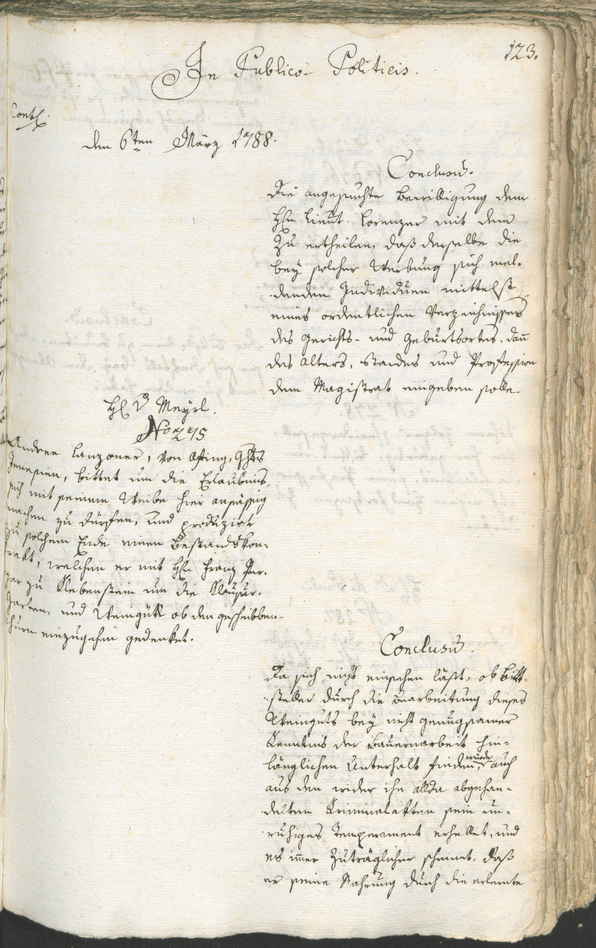 123.
In Publico-Politicis.
Cont.
den 6ten März 1788.
Conclusũ.
Die angesuchte Bewilligung dem
Hħ Lieut. Lorenzer mit dem
zu ertheilen, daß derselbe die
bey solcher Werbung sich mel-
denden Individuen mittelst
eines ordentlichen Verzeichnißes
des Gerichts- und Geburtsortes, dann
des Alters, Standes und Profession
dem Magistrat eingeben solle.
Hl. D. Meyrl.
No 275
Andree Lanzoner, von Afing, Ghts
Jenesien, bittet um die Erlaubnis,
sich mit seinem Weibe hier ansässig
machen zu dürfen, und produzirt
zu solchem Ende einen Bestandskon-
trakt, welchen er mit Hħ Franz
zu Klebenstein um die
Garten, und Weingütl ob den gescheibben-
thurn einzugehen gedenket.
Conclusũ.
Da sich nicht einsehen läßt, ob Bitt-
steller durch die Bearbeitung dieses
Weinguts bey nicht genugsamer
Kenntnis der Bauernarbeit hin-
länglichen Unterhalt finden würde, auch
aus den wider ihn allda abgehan-
delten Kriminalakten sein un-
ruhiges Temperament erhellet, und
es imer zuträglicher scheinet, daß
er seine Nahrung durch die erlernte